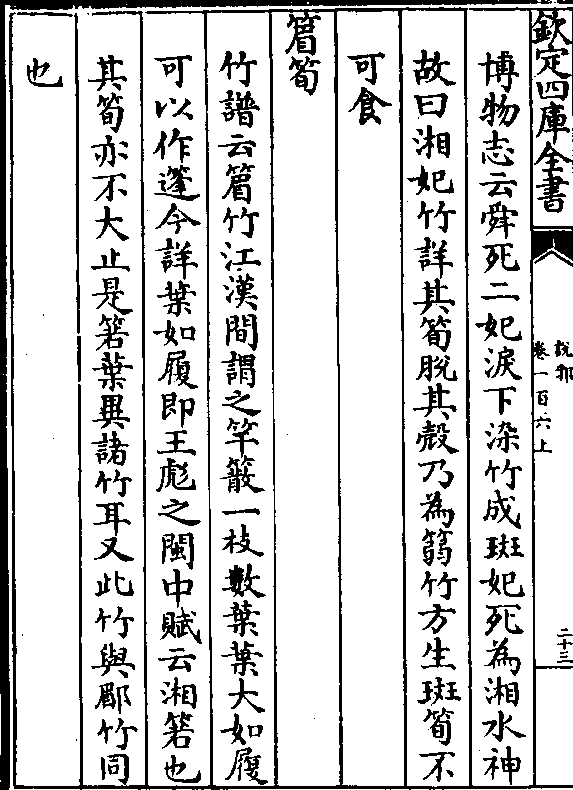 欽定四庫全書
說郛
卷一百六上
二十三
博物志云舜死二妃淚下染竹成斑妃死為湘水神
故曰湘妃竹詳其筍脫其殼乃為篛竹方生斑筍不
可食
篃筍
竹譜云篃竹江漢間謂之竿䉛一枝數葉葉大如履
可以作篷今詳葉如履即王彪之閩中賦云湘箬也
其筍亦不大止是箬葉異諸竹耳又此竹與郿竹同
也